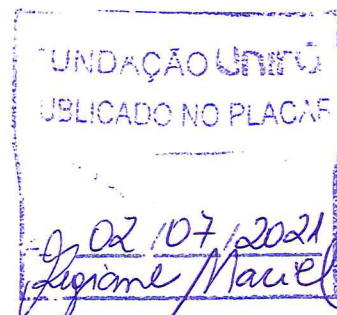 UNDAÇÃO UnirG
UBLICADO NO PLACAR
02/07/2021
Maciel